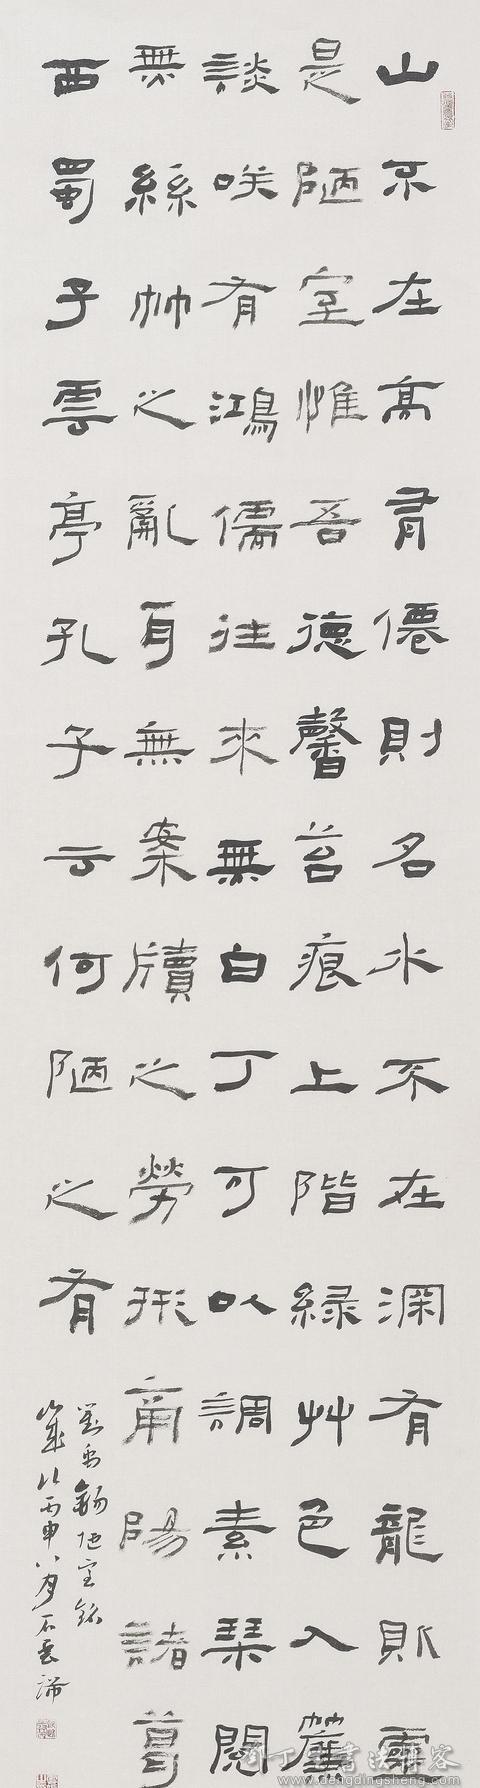 山不在高有僊則名水不在淵有龍則靈
是陋室惟吾德馨苔痕上階綠艸色入簾
談咲有鴻儒往來無白丁可以調素琴閱
無絲竹之亂耳無案牘之勞形南陽諸葛
西蜀子雲亭孔子云何陋之有
劉禹錫陋室銘
歲次丙申八月石
丁生書法博客
www.dengdingsheng.com